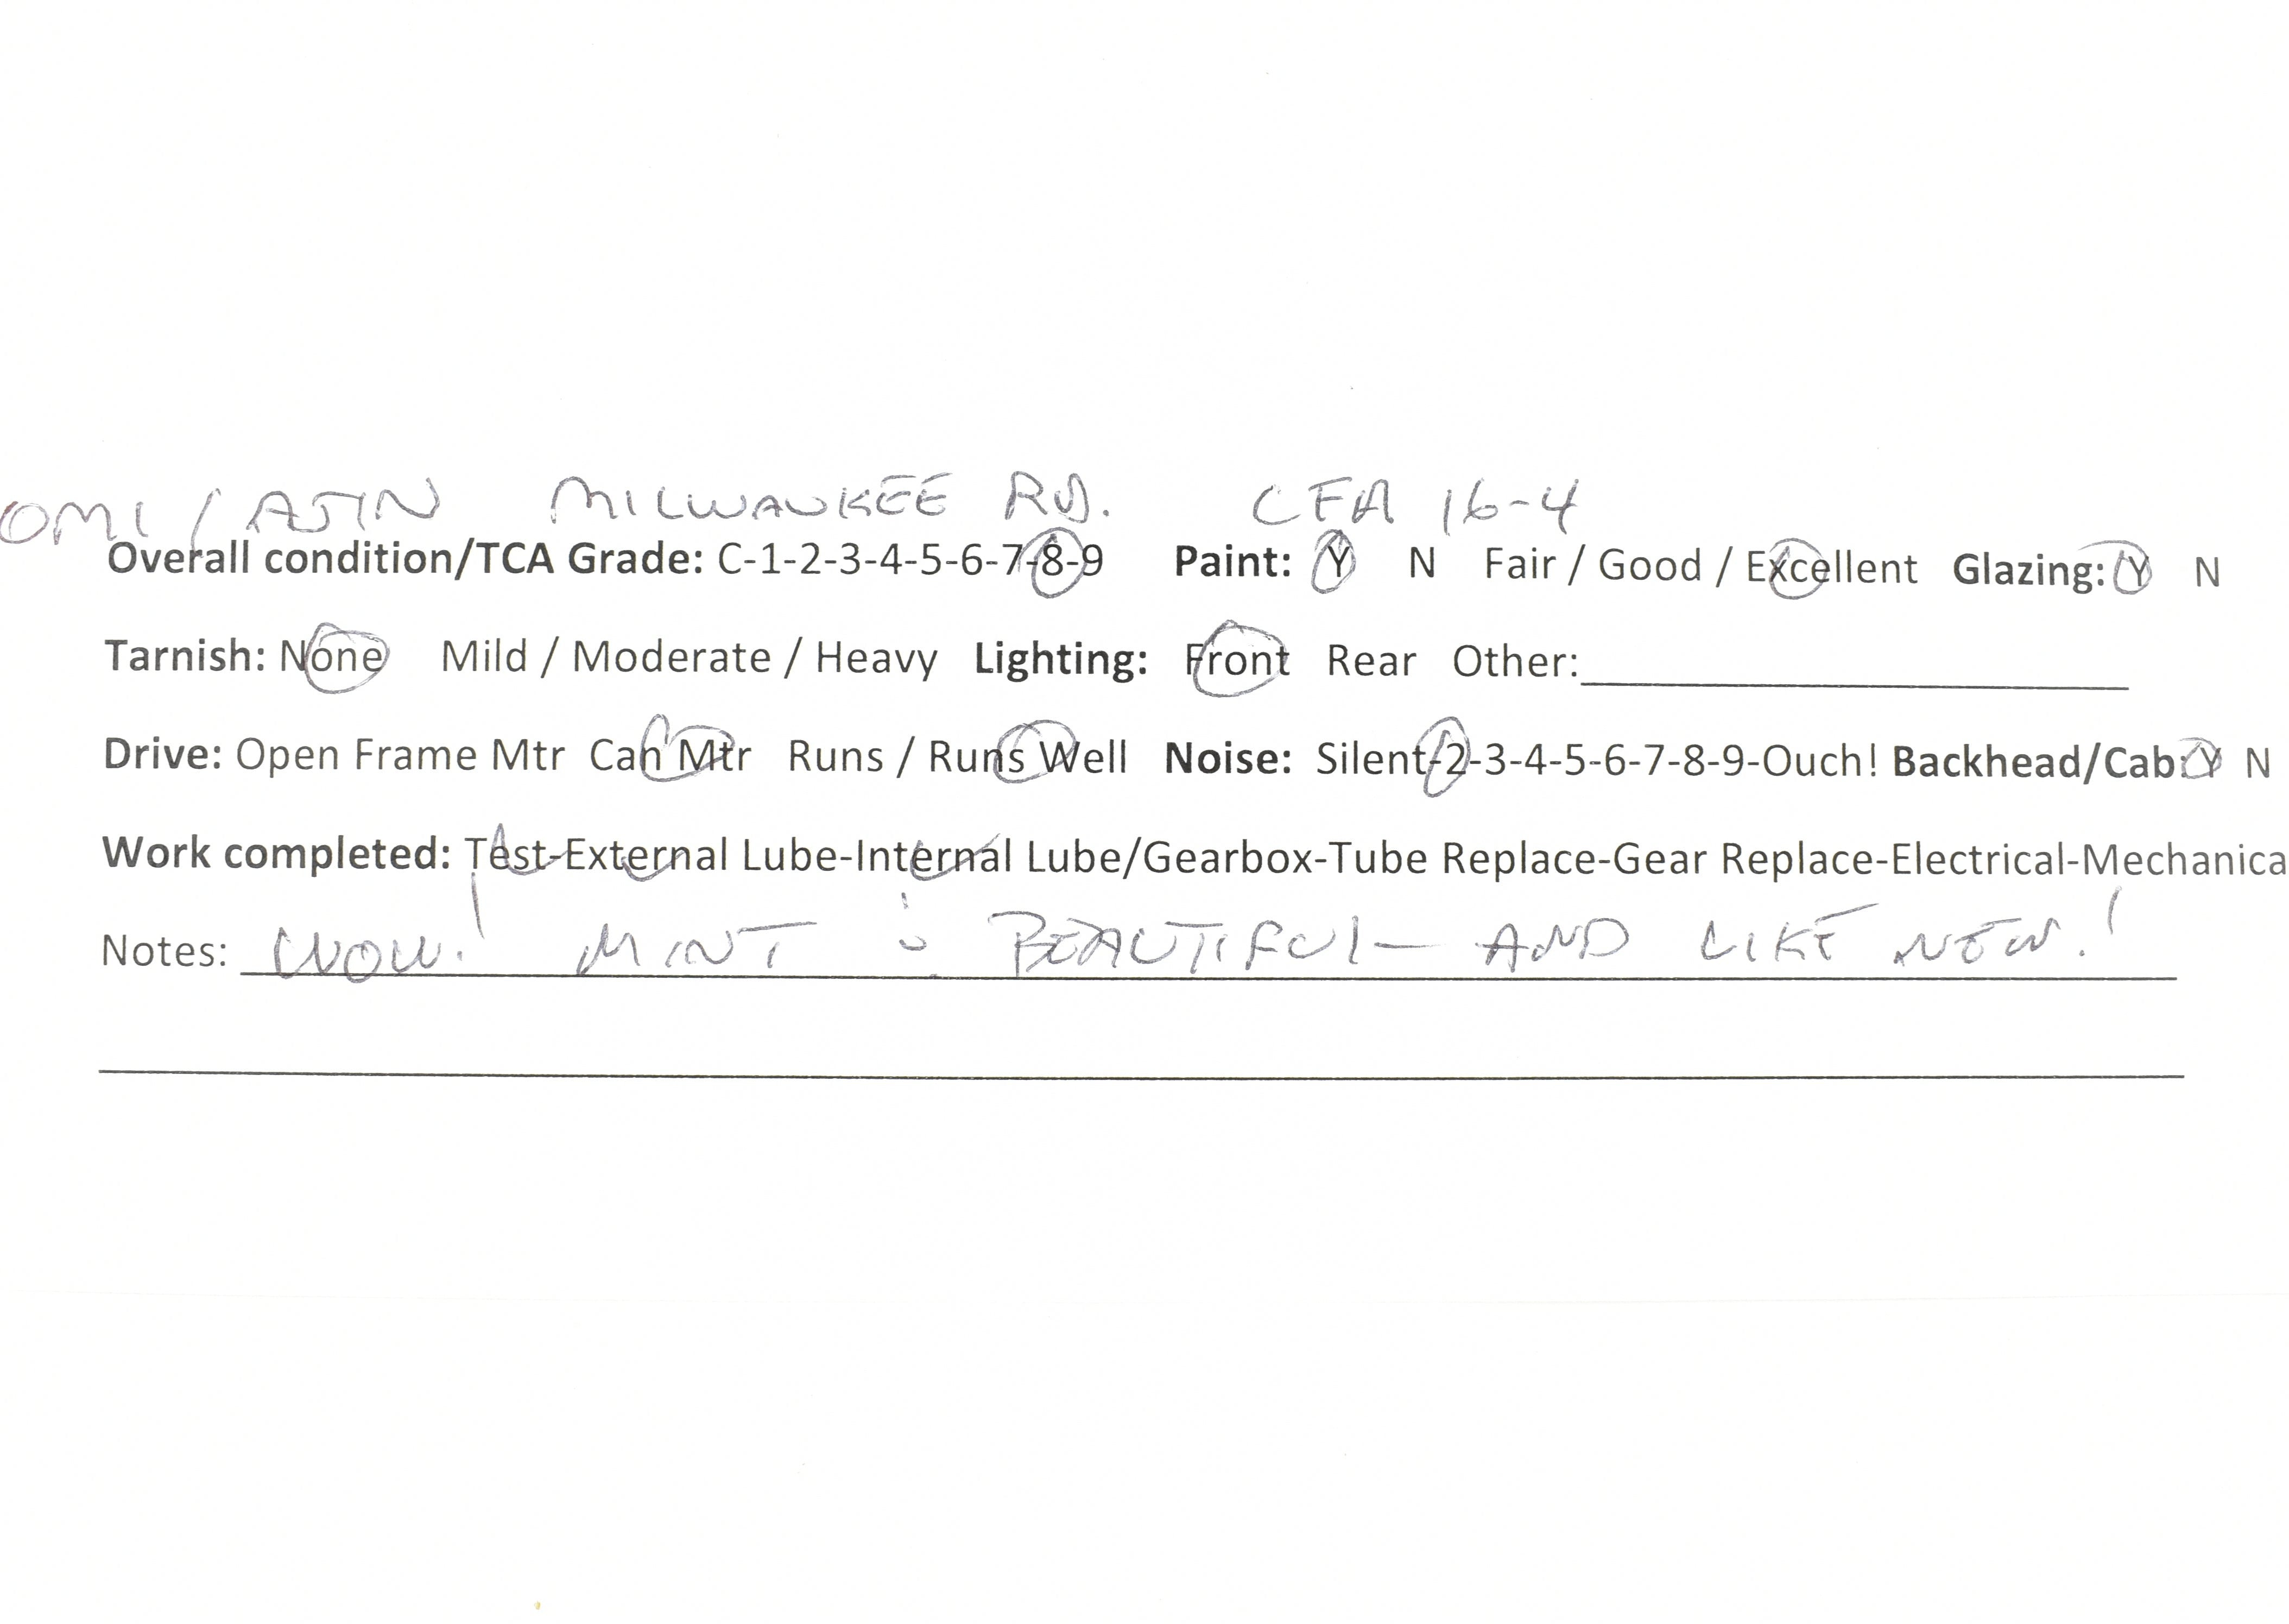 OMI / AJIN MILWAUKEE RD. CFA 16-4
Overall condition/TCA Grade: C-1-2-3-4-5-6-7-8-9 Paint: Y N Fair / Good / Excellent Glazing: Y N
Tarnish: None Mild / Moderate / Heavy Lighting: Front Rear Other:
Drive: Open Frame Mtr Can Mtr Runs / Runs Well Noise: Silent-2-3-4-5-6-7-8-9-Ouch! Backhead/Cab: Y N
Work completed: Test-External Lube-Internal Lube/Gearbox-Tube Replace-Gear Replace-Electrical-Mechanica
Notes: WOW! MINT BEAUTIFUL AND LIKE NEW!